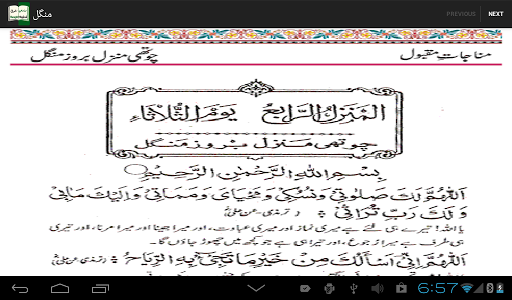 منگل
PREVIOUS NEXT
مناجاتِ مقبول چوتھی منزل بروز منگل
اَلْمَنْزِلُ الرَّابِعُ يَوْمُ الثُّلَاثَاءِ
چوتھی منزل بروز منگل
بِسْمِ اللهِ الرَّحْمٰنِ الرَّحِيْمِ
اَللّٰهُمَّ لَكَ صَلٰوتِیْ وَنُسُكِیْ وَمَحْيَایَ وَمَمَاتِیْ وَاِلَيْكَ مَاٰبِیْ
وَلَكَ رَبِّ تُرَاثِیْ (ترمذی، عن علیؓ)
یا اللہ! تیرے ہی لئے ہے میری نماز اور میری عبادت، اور میرا جینا اور میرا مرنا، اور تیری
ہی طرف ہے میرا رجوع، اور تیرا ہی ہے جو کچھ میں چھوڑ جاؤں گا۔
اَللّٰهُمَّ اِنِّیْ اَسْئَلُكَ مِنْ خَيْرِ مَا تَجِیْءُ بِهِ الرِّيَاحُ
6:57